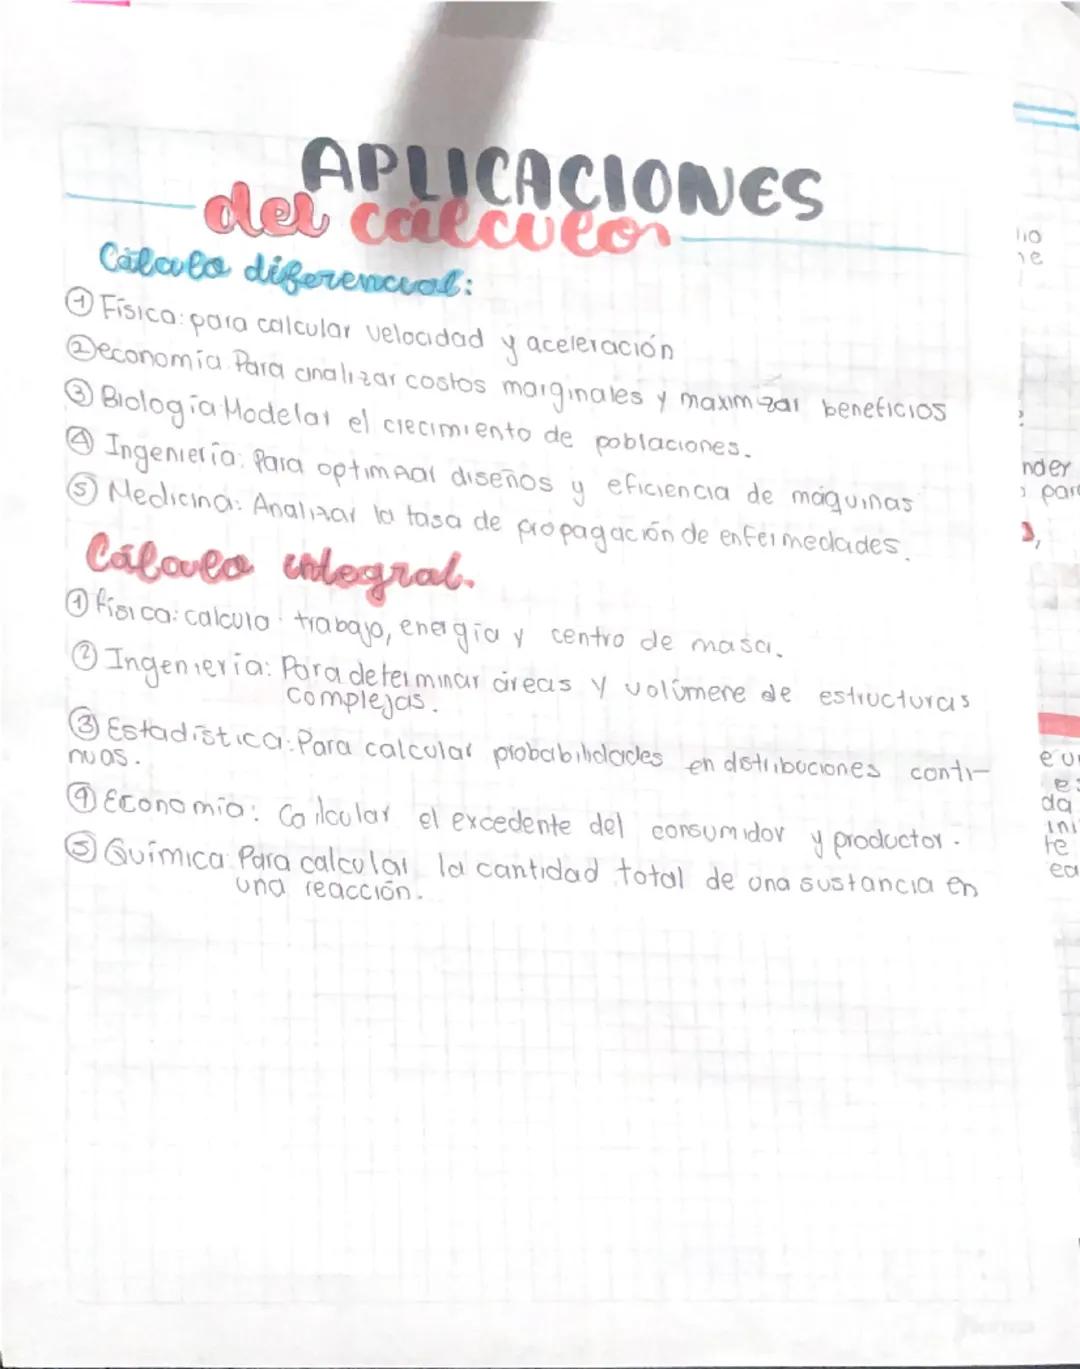 APLICACIONES
del cálculo
Cálculo diferencial:
① Física: para calcular velocidad y aceleración
② economía Para analizar costos marginales y maximizar beneficios
③ Biología Modelar el crecimiento de poblaciones.
④ Ingeniería: Para optimizar diseños y eficiencia de máquinas
⑤ Medicina: Analizar la tasa de propagación de enfermedades.
Cálculo integral.
① física: calcula trabajo, energía y centro de masa.
② Ingeniería: Para determinar áreas y volúmene de estructuras
complejas.
③ Estadística: Para calcular probabilidades en distribuciones conti-
nuos.
④ Economía: Calcular el excedente del consumidor y productor.
⑤ Química Para calcular la cantidad total de una sustancia en
una reacción.